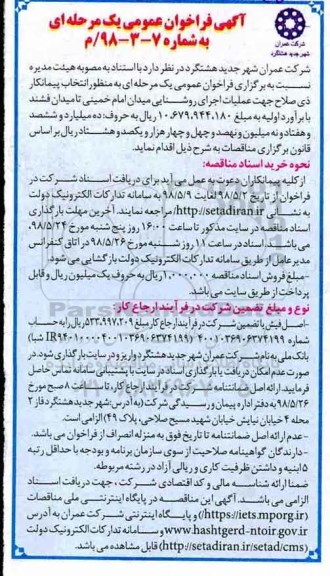 آگهی فراخوان عمومی یک مرحله ای
به شماره ۷-۳-۹۸/م
شرکت عمران
شهر جدید هشتگرد
شرکت عمران شهر جدید هشتگرد در نظر دارد با استناد به مصوبه هیئت مدیره
نسبت به برگزاری فراخوان عمومی یک مرحله ای به منظور انتخاب پیمانکار
ذی صلاح جهت عملیات اجرای روشنایی میدان امام خمینی تا میدان قشند
با برآورد اولیه به مبلغ ۱۰،۶۷۹،۹۴۴،۱۸۰ ریال به حروف: ده میلیارد و ششصد
و هفتاد و نه میلیون و نهصد و چهل و چهار هزار و یکصد و هشتاد ریال بر اساس
قانون برگزاری مناقصات به شرح ذیل اقدام نماید.
نحوه خرید اسناد مناقصه:
از کلیه پیمانکاران دعوت به عمل می آید برای دریافت اسناد شرکت در
فراخوان از تاریخ ۹۸/۵/۲ لغایت ۹۸/۵/۹ به سامانه تدارکات الکترونیک دولت
به نشانی http://setadiran.ir/ مراجعه نمایند. آخرین مهلت بارگذاری
اسناد مناقصه در سایت مذکور تا ساعت ۱۶:۰۰ روز پنج شنبه مورخ ۹۸/۵/۲۴
می باشد. اسناد در ساعت ۱۱ روز شنبه مورخ ۹۸/۵/۲۶ در اتاق کنفرانس
مدیرعامل از طریق سامانه تدارکات الکترونیک دولت بازگشایی می شود.
-مبلغ فروش اسناد مناقصه ۱،۰۰۰،۰۰۰ ریال به حروف یک میلیون ریال و قابل
پرداخت از طریق سایت می باشد.
نوع و مبلغ تضمین شرکت در فرآیند ارجاع کار
-اصل فیش یا تضمین شرکت در فرآیند ارجاع کار مبلغ ۵۳۳،۹۹۷،۲۰۹ ریال به حساب
شماره ۴۰۰۱۰۳۶۹۰۶۳۷۴۱۹۹
بانک ملی به نام شرکت عمران شهر جدید هشتگرد واریز و در سایت بارگذاری شود. در
صورت عدم امکان دریافت یا بارگذاری اسناد در سایت با پشتیبانی سامانه تماس حاصل
فرمایید. ارائه اصل ضمانتنامه شرکت در فرآیند ارجاع کار، تا ساعت ۸ صبح مورخ
۹۸/۵/۲۶ به دفتر اداره پیمان و رسیدگی شرکت (به آدرس: شهر جدید هشتگرد فاز ۲
محله ۴ خیابان نیایش خیابان شهید مسیح صلاحی، پلاک ۴۹) الزامی است.
-عدم ارائه اصل ضمانتنامه تا تاریخ فوق به منزله انصراف از فراخوان می باشد.
-دارندگان گواهینامه صلاحیت از سوی سازمان برنامه و بودجه با حداقل رتبه
۵ ابنیه و داشتن ظرفیت کاری و ریالی آزاد در رشته مربوطه.
ضمنا ارائه شناسه ملی و کد اقتصادی شرکت ، جهت دریافت اسناد
الزامی می باشد. آگهی این مناقصه در پایگاه اینترنتی ملی مناقصات
(https://iets.mporg.ir) و پایگاه اینترنتی شرکت عمران به آدرس
www.hashtgerd-ntoir.gov.ir و سامانه تدارکات الکترونیک دولت
(http://setadiran.ir/setad/cms) قابل مشاهده می باشد.